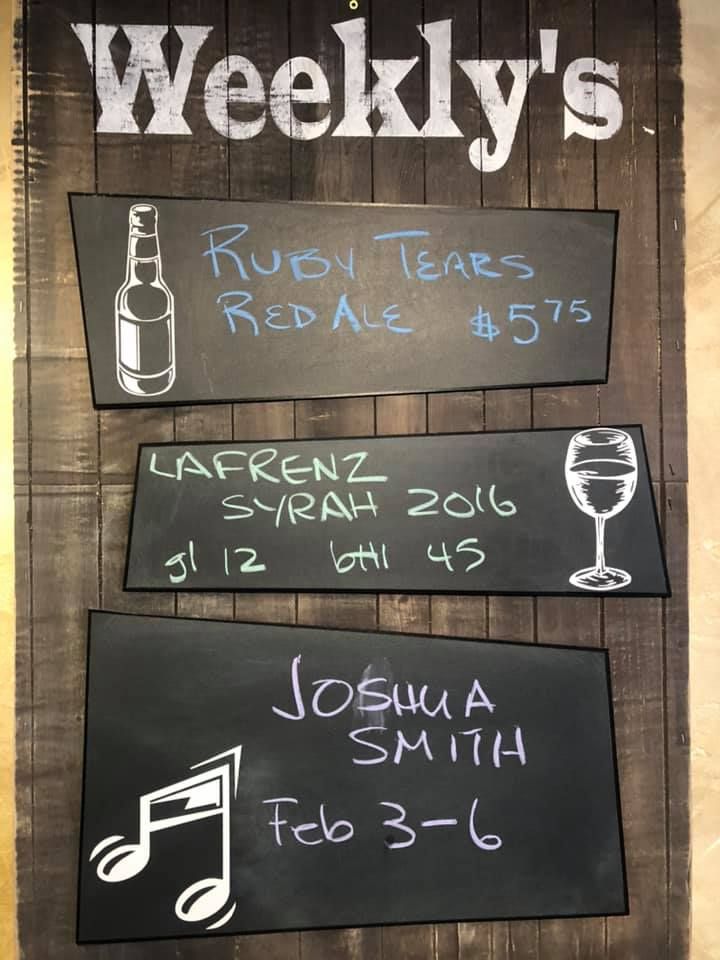 Weekly's
RUBY TEARS
RED ALE $5 75
LAFRENZ
SYRAH 2016
gl 12 btl 45
JOSHUA
SMITH
Feb 3-6